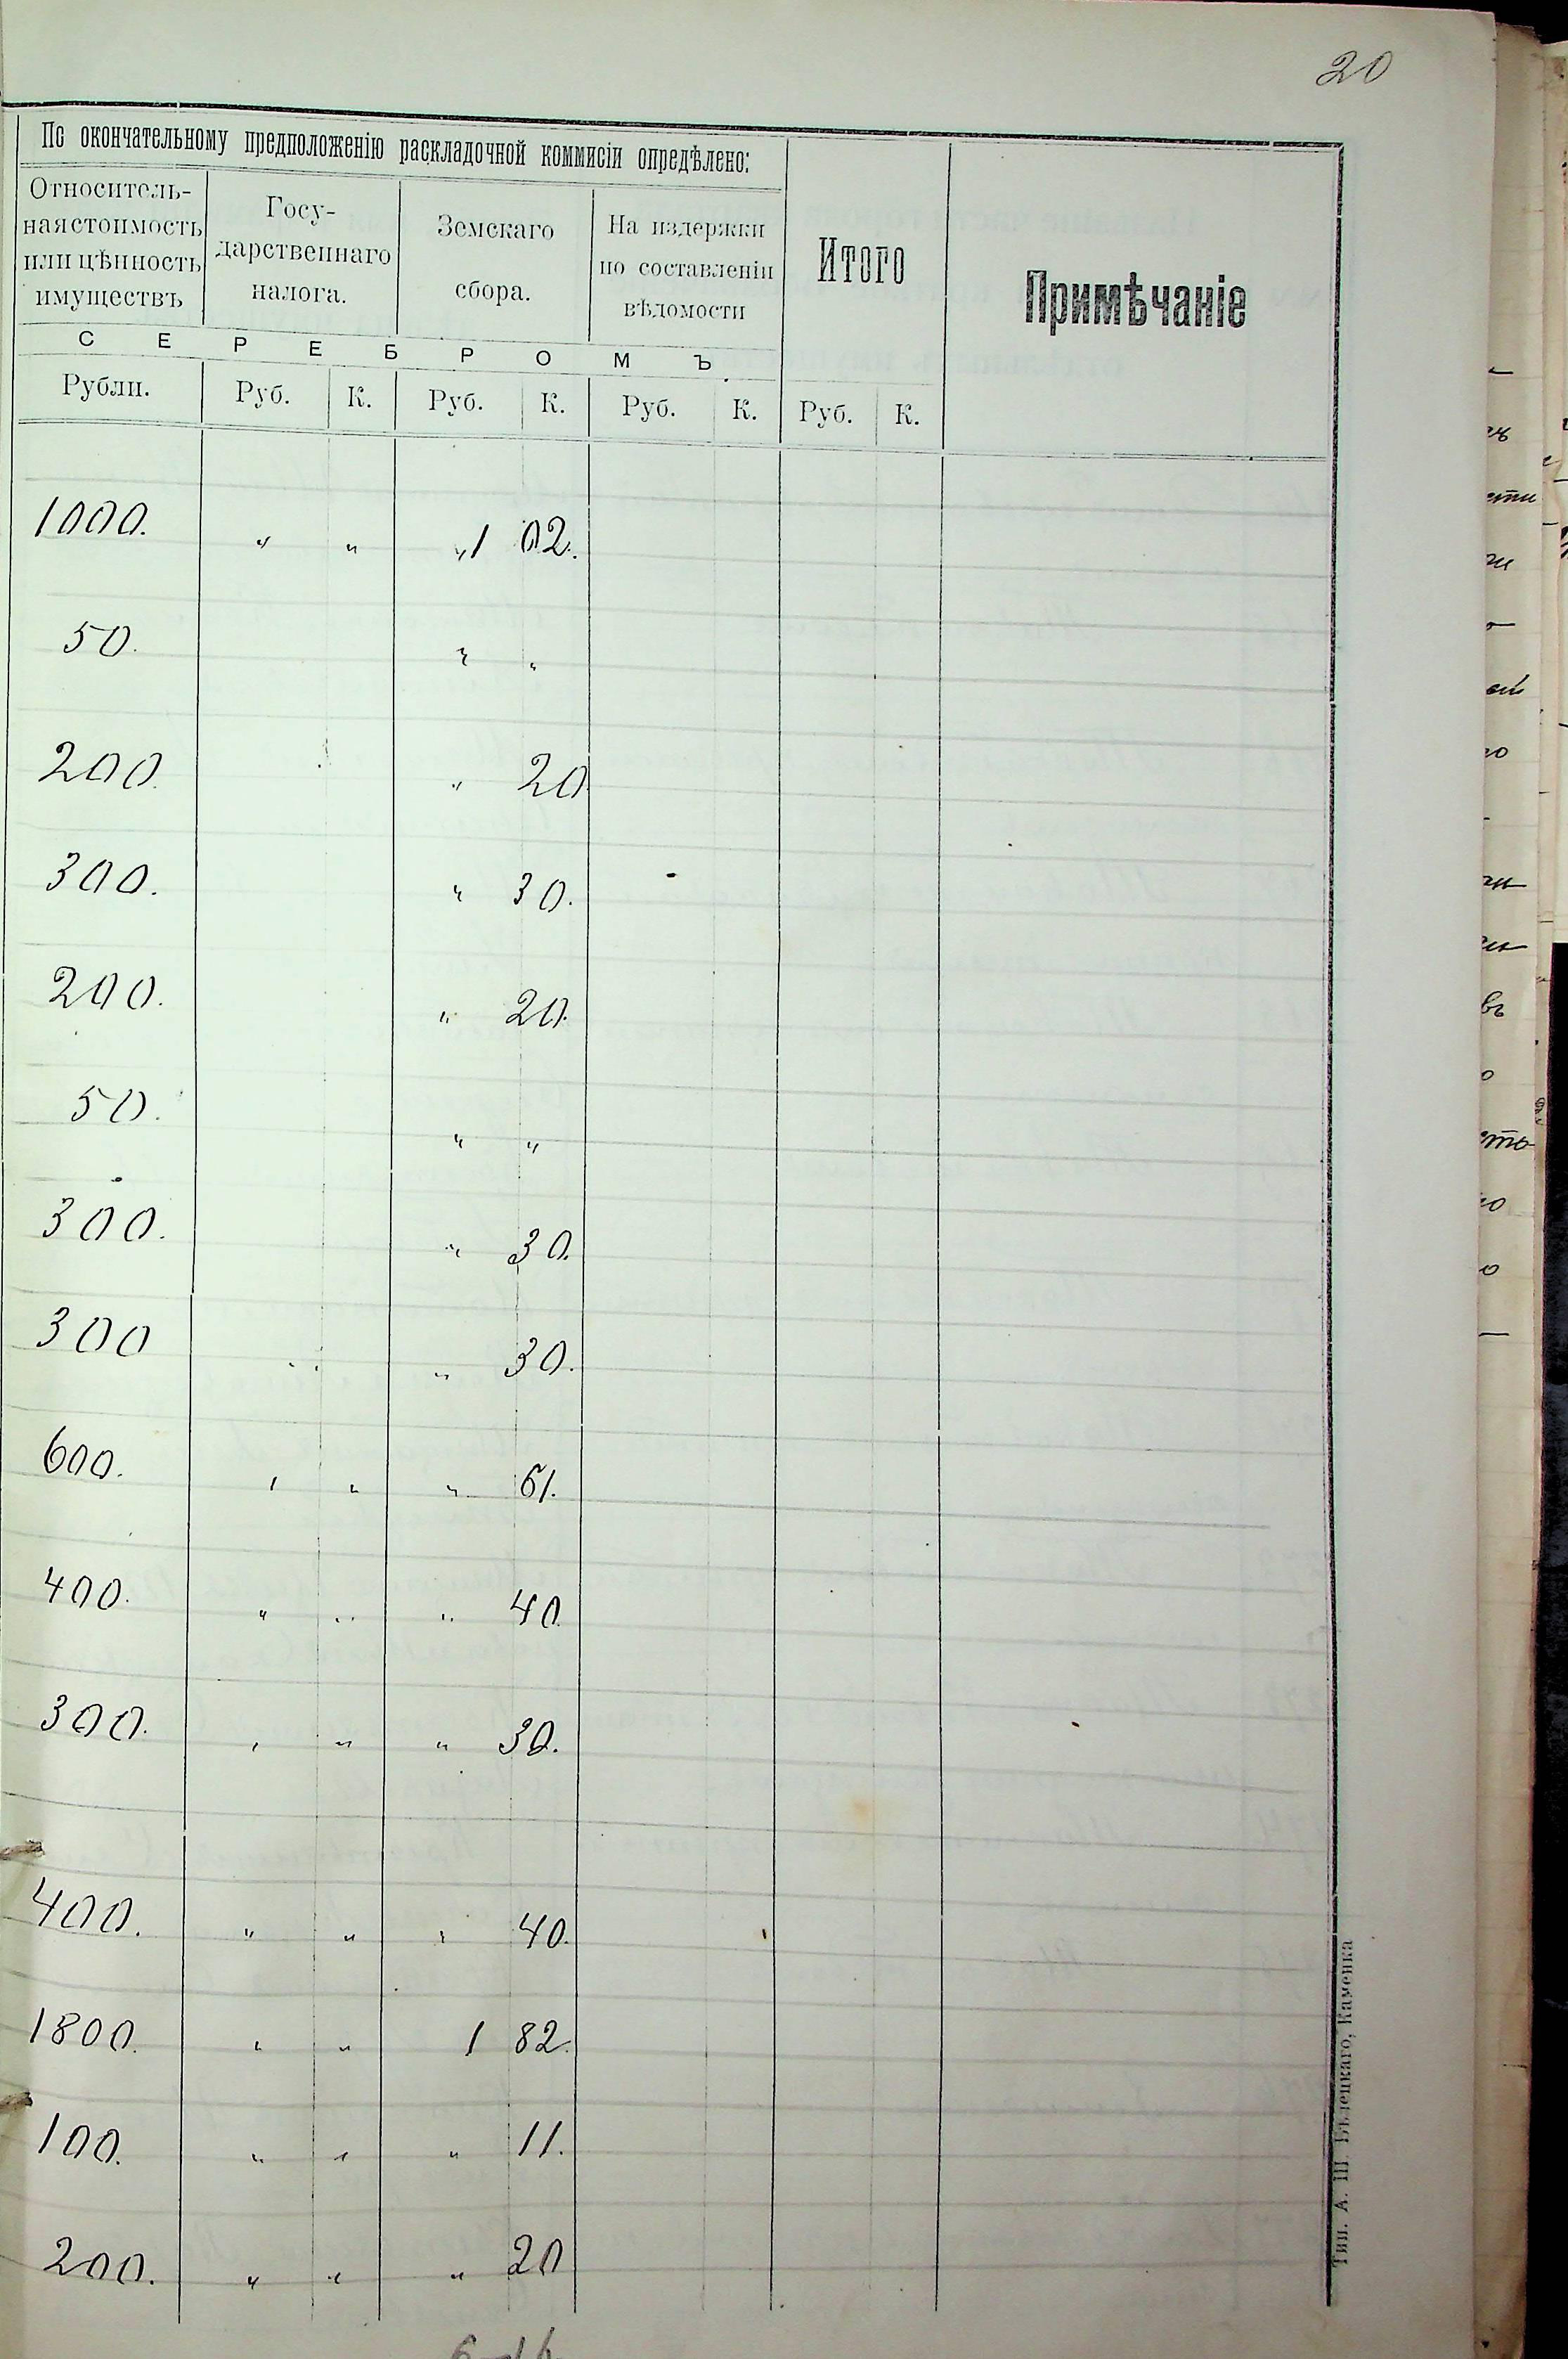 20
По окончательному предположенію раскладочной коммисіи опредѣлено:
Относитель-
ная стоимость
или цѣнность
имуществъ
Госу-
дарственнаго
налога.
Земскаго
сбора.
На издержки
по составленіи
вѣдомости
Итого
Примѣчаніе
С Е Р Е Б Р О М Ъ
Рубли. Руб. К. Руб. К. Руб. К. Руб. К.
1000. " " " 1 02.
50. " "
200. " 20
300. " 30.
200. " 20.
50. " "
300. " 30.
300 " 30.
600. " " " 61.
400. " " " 40.
300. " " " 30.
400. " " " 40.
1800. " " 1 82.
100. " " " 11.
200. " " " 20
Тип. А. Ш. Бѣлецкаго, Каменка